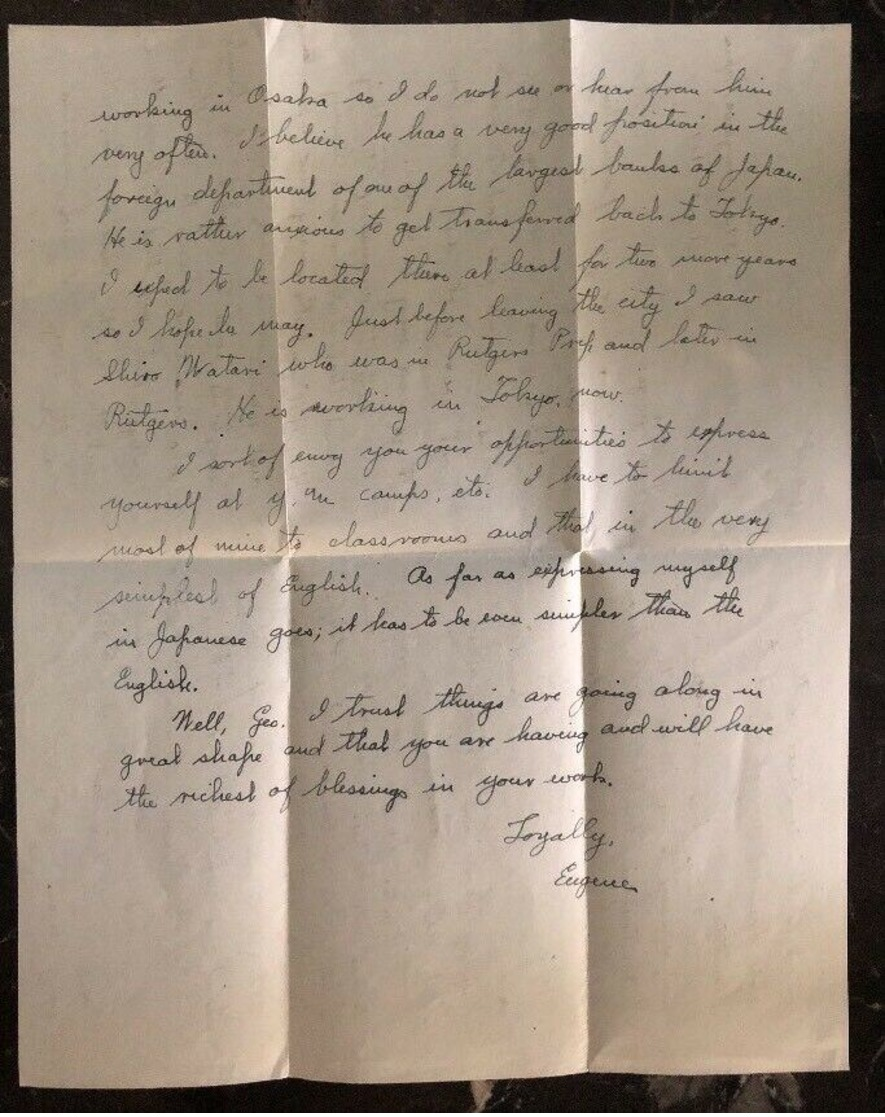 working in Osaka so I do not see or hear from him
very often. I believe he has a very good position in the
foreign department of one of the largest banks of Japan.
He is rather anxious to get transferred back to Tokyo.
I expect to be located there at least for two more years
so I hope he may. Just before leaving the city I saw
Shiro Watari who was in Rutgers Prep and later in
Rutgers. He is working in Tokyo, now.
I sort of envy you your opportunities to express
yourself at Y.M. camps, etc. I have to limit
most of mine to classrooms and that in the very
simplest of English. As far as expressing myself
in Japanese goes; it has to be even simpler than the
English.
Well, Geo. I trust things are going along in
great shape and that you are having and will have
the richest of blessings in your work.
Loyally,
Eugene